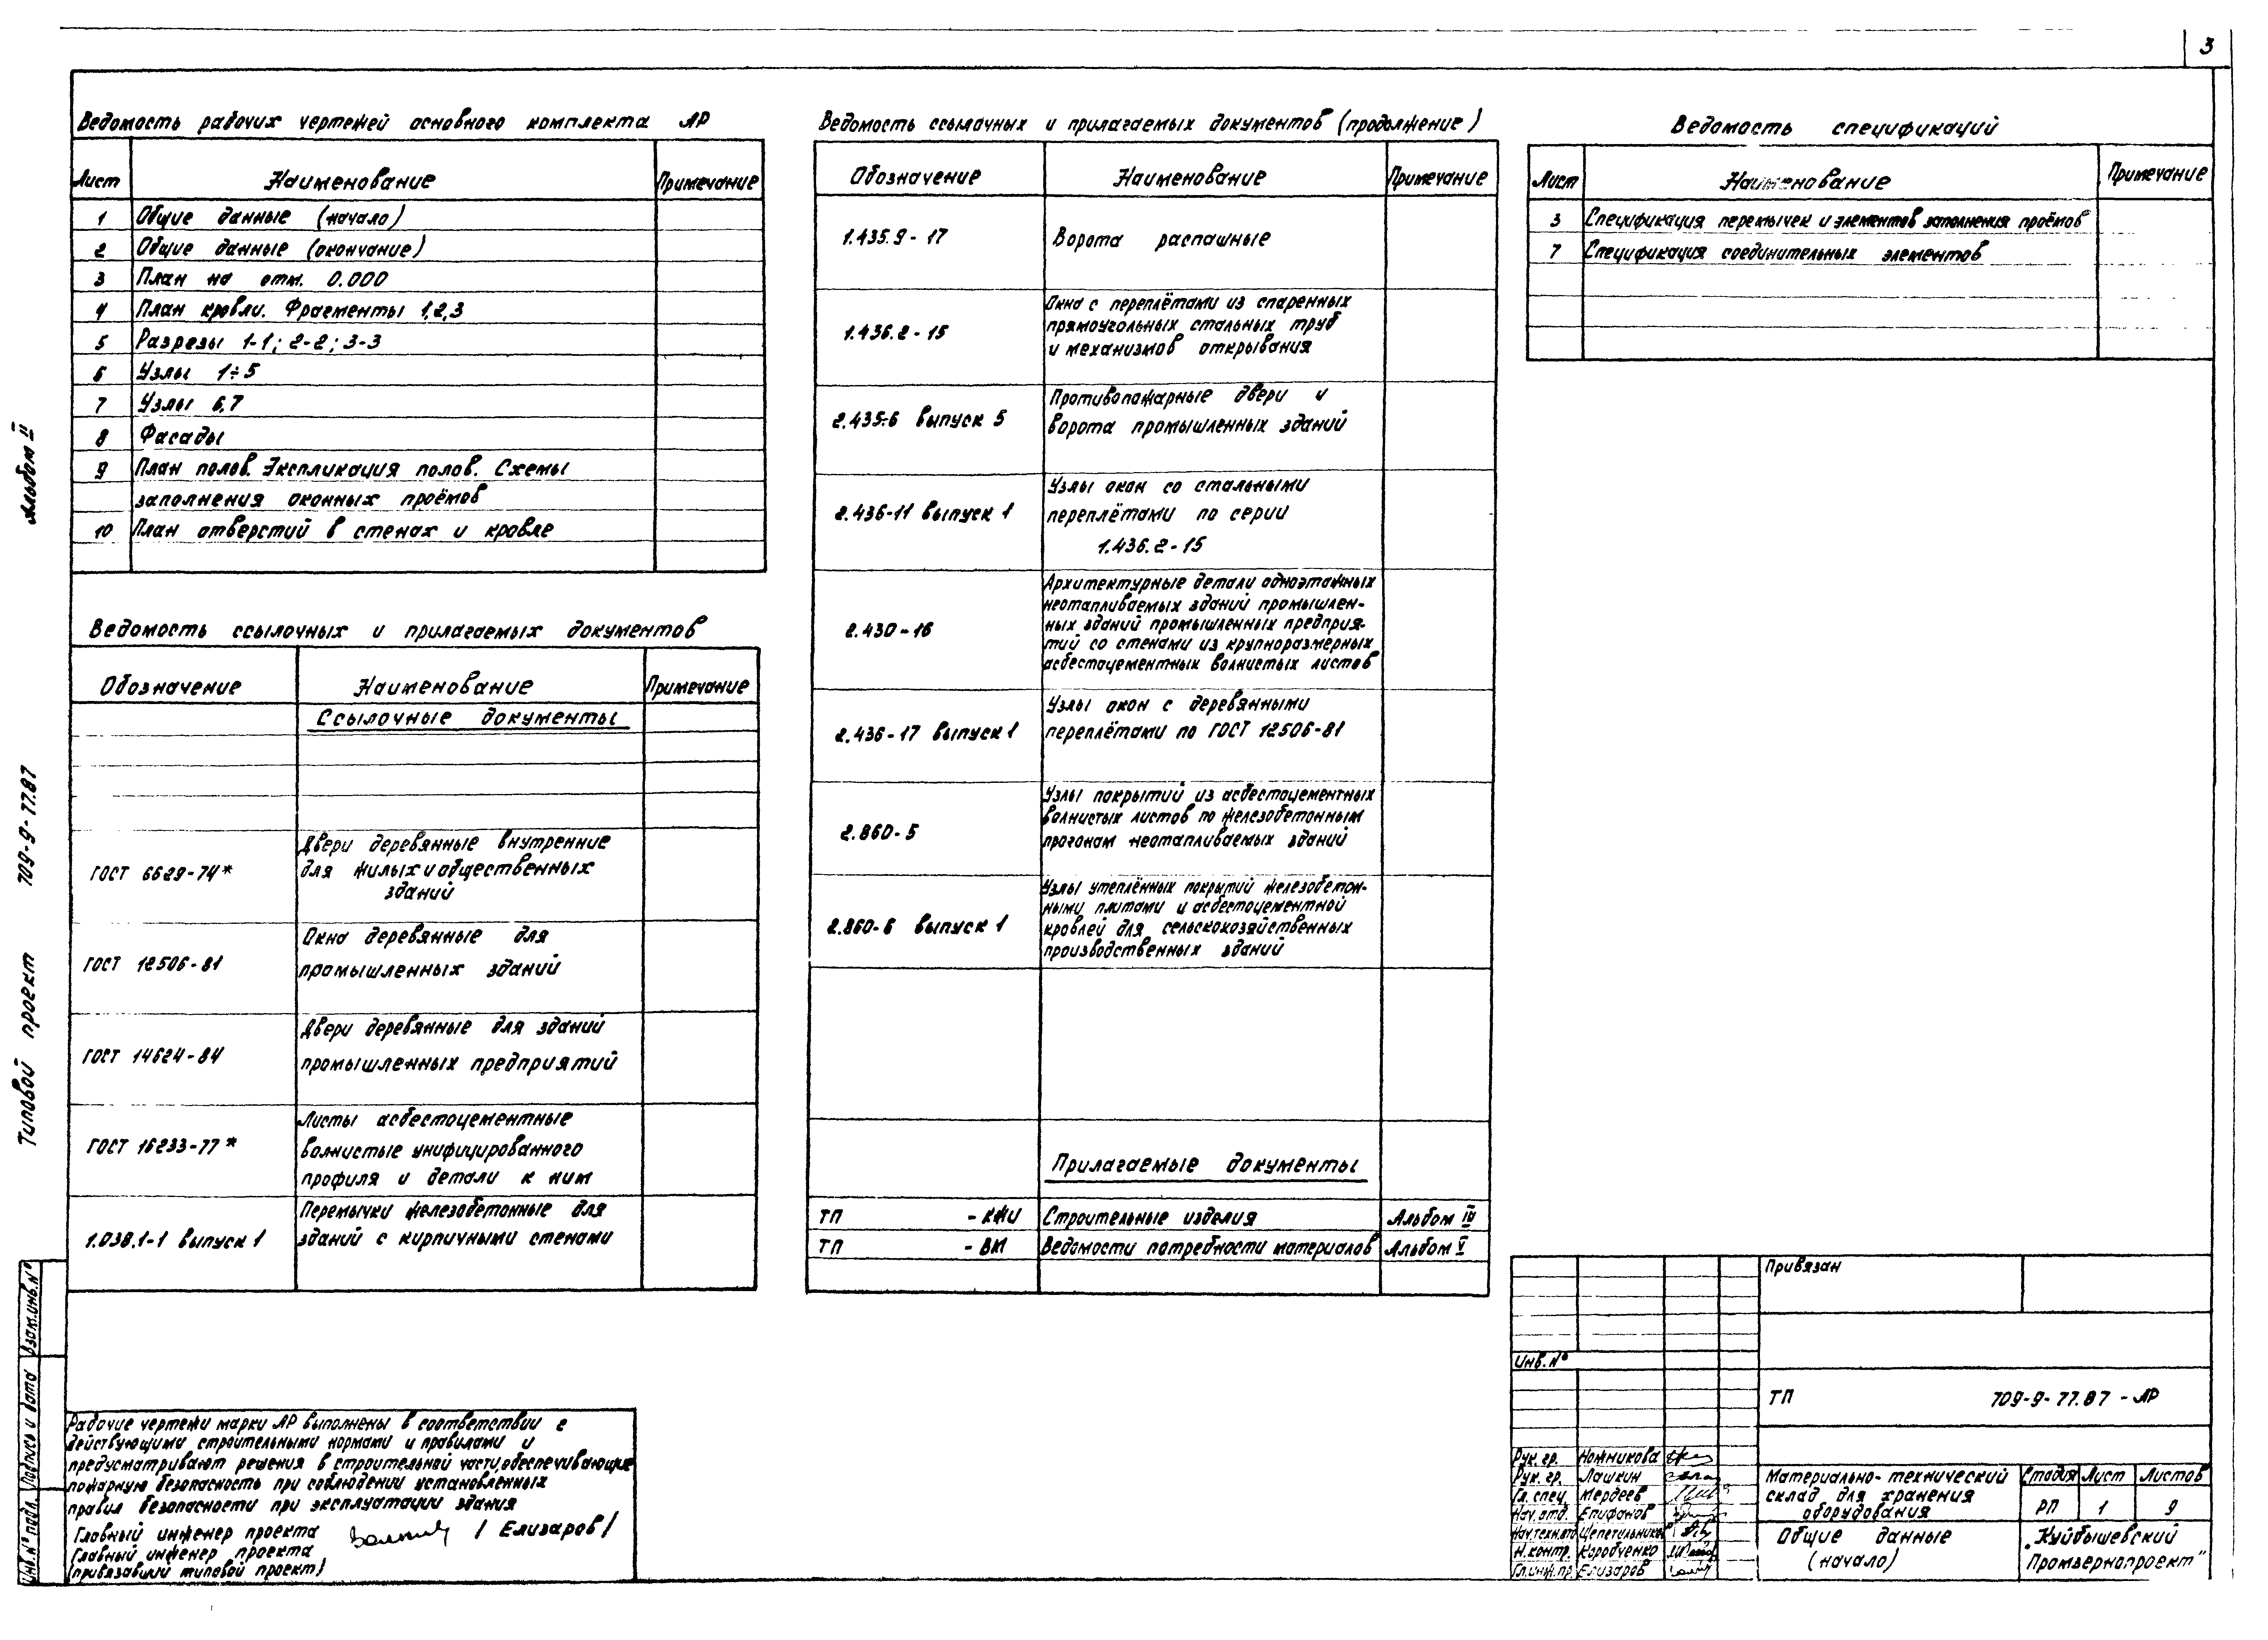 3
Ведомость рабочих чертежей основного комплекта АР
Лист Наименование Примечание
1 Общие данные (начало)
2 Общие данные (окончание)
3 План на отм. 0.000
4 План кровли. Фрагменты 1,2,3
5 Разрезы 1-1; 2-2; 3-3
6 Узлы 1÷5
7 Узлы 6,7
8 Фасады
9 План полов. Экспликация полов. Схемы
заполнения оконных проёмов
10 План отверстий в стенах и кровле
Ведомость ссылочных и прилагаемых документов
Обозначение Наименование Примечание
Ссылочные документы
ГОСТ 6629-74*
Двери деревянные внутренние
для жилых и общественных
зданий
ГОСТ 12506-81
Окна деревянные для
промышленных зданий
ГОСТ 14624-84
Двери деревянные для зданий
промышленных предприятий
ГОСТ 16233-77*
Листы асбестоцементные
волнистые унифицированного
профиля и детали к ним
1.038.1-1 выпуск 1
Перемычки железобетонные для
зданий с кирпичными стенами
Ведомость ссылочных и прилагаемых документов (продолжение)
Обозначение Наименование Примечание
1.435.9-17 Ворота распашные
1.436.2-15
Окна с переплётами из спаренных
прямоугольных стальных труб
и механизмов открывания
2.435-6 выпуск 5
Противопожарные двери и
ворота промышленных зданий
2.436-11 выпуск 1
Узлы окон со стальными
переплётами по серии
1.436.2-15
2.430-16
Архитектурные детали одноэтажных
неотапливаемых зданий промышлен-
ных зданий промышленных предприя-
тий со стенами из крупноразмерных
асбестоцементных волнистых листов
2.436-17 выпуск 1
Узлы окон с деревянными
переплётами по ГОСТ 12506-81
2.860-5
Узлы покрытий из асбестоцементных
волнистых листов по железобетонным
прогонам неотапливаемых зданий
2.860-6 выпуск 1
Узлы утеплённых покрытий железобетон-
ными плитами и асбестоцементной
кровлей для сельскохозяйственных
производственных зданий
Прилагаемые документы
ТП -КЖИ Строительные изделия Альбом IV
ТП -ВМ Ведомости потребности материалов Альбом V
Ведомость спецификаций
Лист Наименование Примечание
3 Спецификация перемычек и элементов заполнения проёмов
7 Спецификация соединительных элементов
Альбом II
Типовой проект 709-9-77.87
Взам.инв.№
Подпись и дата
Инв.№ подл.
Рабочие чертежи марки АР выполнены в соответствии с
действующими строительными нормами и правилами и
предусматривают решения в строительной части, обеспечивающие
пожарную безопасность при соблюдении установленных
правил безопасности при эксплуатации здания
Главный инженер проекта /Елизаров/
Главный инженер проекта
(привязавший типовой проект)
Привязан
Инв.№
ТП 709-9-77.87-АР
Рук.гр. Ножникова
Рук.гр. Лашкин
Гл.спец. Мердеев
Нач.отд. Епифанов
Нач.техн.отд Щепетильников
Н.контр. Коробченко
Гл.инж.пр. Елизаров
Материально-технический
склад для хранения
оборудования
Стадия Лист Листов
РП 1 9
Общие данные
(начало)
„Куйбышевский
Промзернопроект"